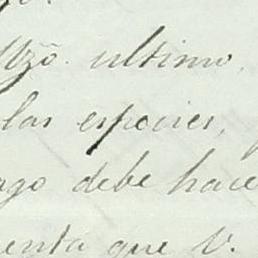 Mzō. ultimo,
las especies,
ago debe hace
enta que V.